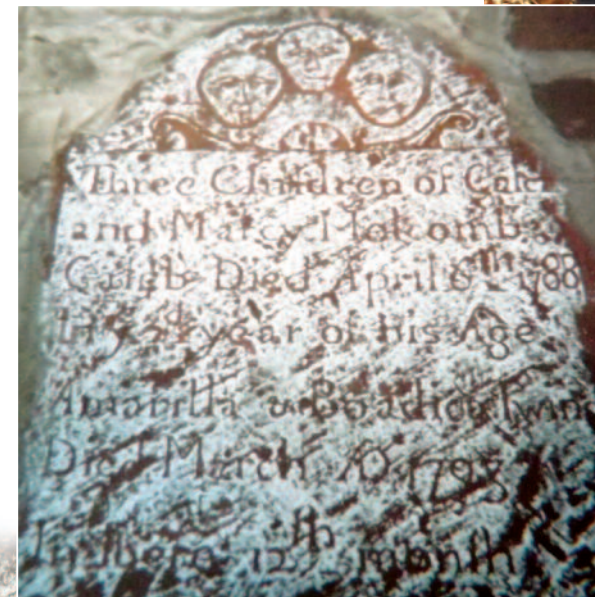 Three Children of Cale
and Marcy Holcomb
Caleb Died April 6th 1788
year of his Age
Amarilla & Twin
Died March AD 1795
In there 12th month